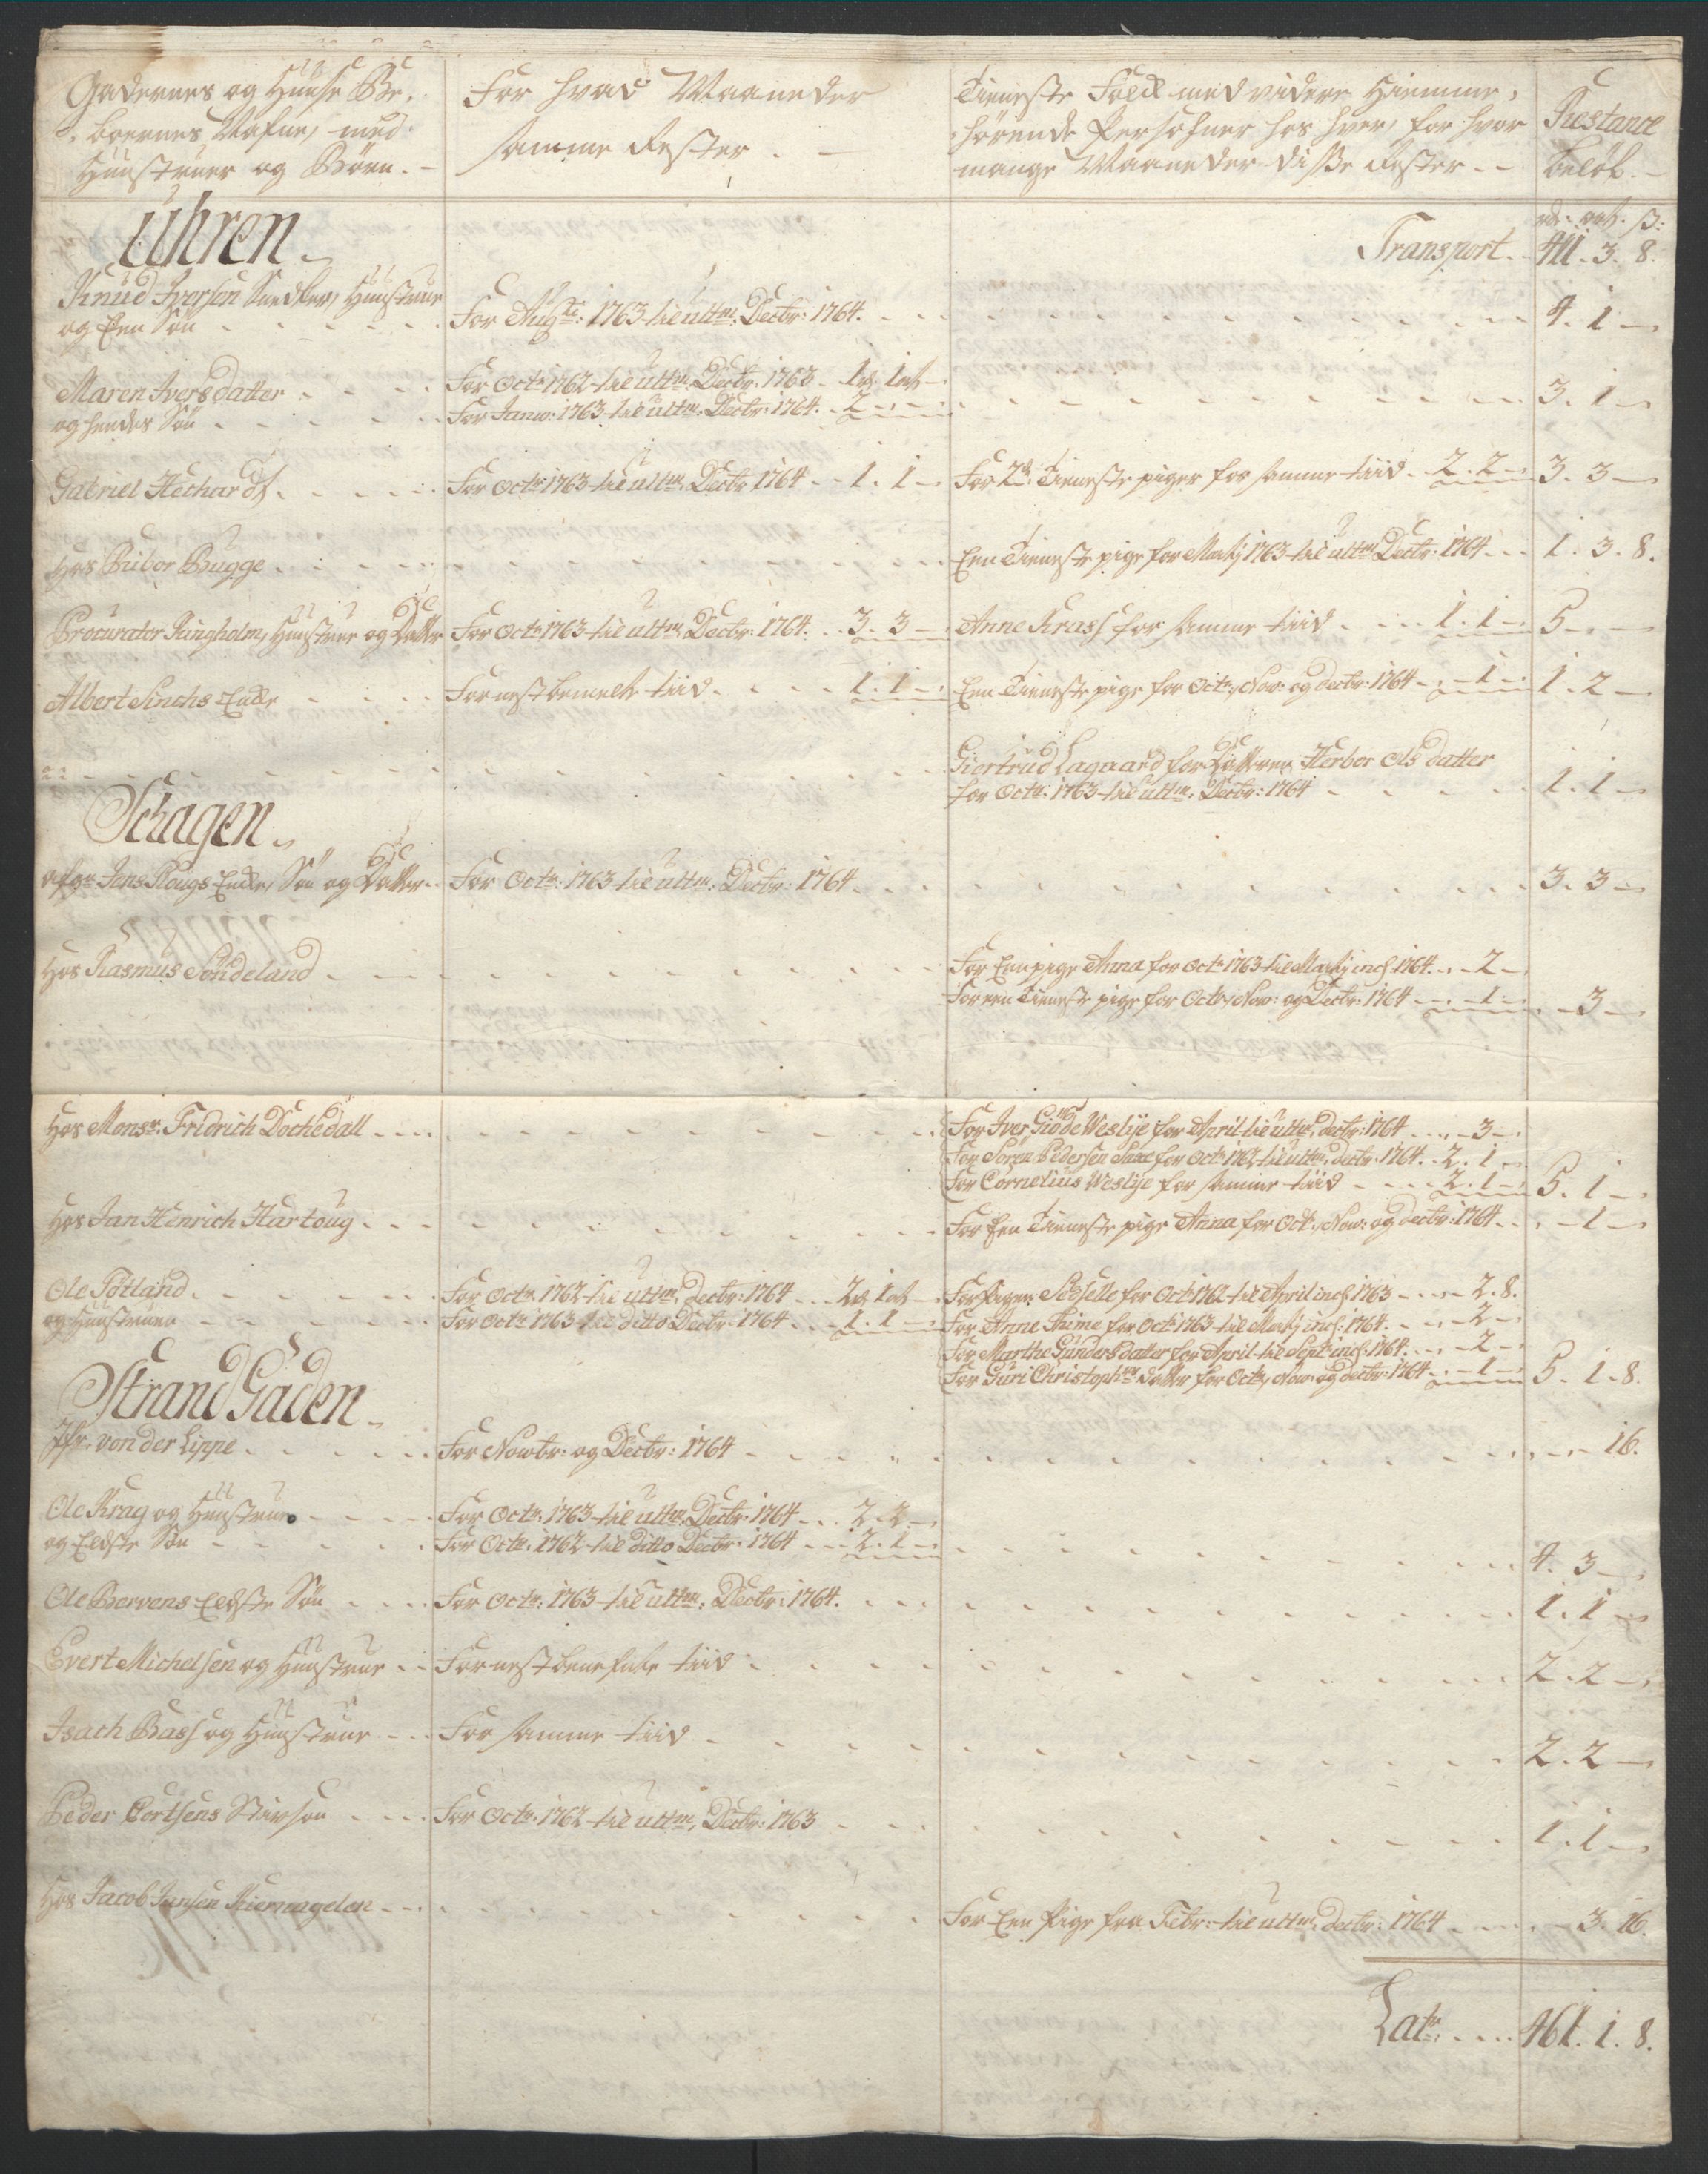 Gadernes og Huuse Be,
boernes Nafne, med
Hunstruer og Börn. -
For hvad Maaneder
samme Rester. -
Tieneste Folck med videre Hiemme,
hörende Persohner hos hver, for hvor
mange Maaneder disse Rester. - -
Restance
belöb. -
Uhren.
rd: ort. s:
Transport. 411. 3. 8.
Knud Iversön Snedker, Hunstrue
og Een Sön . . . . . For Augte: 1763 til ultm. Decbr: 1764. 4. 1 -
Maren Iversdatter . . . . For Octr. 1762 til ultm. Decbr. 1763 - 1rd 1ort -
og hendes Sön . . . . For Janu: 1763 til ultm. Decbr: 1764. - 2 - - 3. 1 -
Gabriel Hechardt . . . . For Octr 1763 til ultm. Decbr 1764 - - 1. 1 - For 2de Tieneste piger for samme tiid - 2. 2 - 3. 3 -
Hos Bugge . . . . Een Tieneste pige for Martj 1763 til ultm. Decbr: 1764 - - 1. 3. 8.
Procurator Ringholm, Hunstrue og Datter For Octr 1763 til ultm. Decbr: 1764. . . 3. 3 - Anne Krass for samme tiid - - - 1. 1 - 5 - -
Albert Sinchs Enke . . . For nestbemelte tiid . . . . 1. 1 - Een Tieneste pige for Octr, Nov: og decbr: 1764 - - 1 - 1. 2 -
Giertrud Lagaard for Datteren Herbor Olsdatter
for Octr. 1763 til ultm. Decbr: 1764 . . . . 1. 1 -
Schagen.
afgn Jens Plougs Enke, Sön og Datter - For Octr. 1763 til ultm. Decbr: 1764 . . . 3. 3 -
Hos Rasmus Söndeland . . . For Een pige Anna for Octr 1763 til Martj incl. 1764. - - 2 -
For een Tieneste pige for Octr, Now: og Decbr: 1764 - - 1 - - 3 -
Hos Monsr. Fridrich Dochedall . . . . For Iver Giöde Weslye for April til ultm. decbr: 1764 . . . - 3 -
For Sören Pedersen Saxe for Octr. 1762 til ultm. decbr. 1764. . 2. 1 -
For Cornelius Weslye for samme tiid - - - 2. 1 - 5. 1 -
Hos Jan Henrich Hartoug . . . For Een Tieneste pige Anna for Octr, Now: og decbr: 1764 . . . - 1 -
Ole Totland . . . . . For Octr. 1762 til ultm. decbr: 1764 . . . 2rd 1ort - For Pigen for Octr 1762 til April incl 1763 - - - 2. 8.
og Hunstruen . . . . For Octr 1763 til ditto Decbr. 1764 . . . 1. 1 - For Anne for Octr 1763 til Martj incl: 1764. . . . 2 -
For Marthe Gundersdatter for April til Septr incl. 1764. . . - 2 -
For Guri Christophersdatter for Octr, Now: og decbr: 1764 - - 1 - 5. 1. 8.
Strand Gaden.
Jfr. von der Lippe . . . . For Nowbr: og Decbr: 1764 . . . . - - 16.
Ole Krag og Hunstrue . . . For Octr. 1763 til ultm. Decbr. 1764 . . . 2. 2 -
og Eldste Sön . . . . For Octr. 1762 til ditto Decbr. 1764 . . . 2. 1 - 4. 3 -
Ole Borvens Eldste Sön . . . For Octr. 1763 til ultm: Decbr: 1764. . . . 1. 1 -
Evert Michelsen og Hunstrue . . For nestbenefnte tiid . . . . 2. 2 -
Isach Bass og Hunstrue - - For samme tiid . . . . 2. 2 -
Peder Cortsens Stivsön . . . For Octr. 1762 til ultm. Decbr: 1763 . . . . 1. 1 -
Hos Jacob Jansen Kiernagelen - - For Een Pige fra Febr: til ultm. decbr: 1764 . . . - 3. 16.
Latr. . . . . 461. 1. 8.